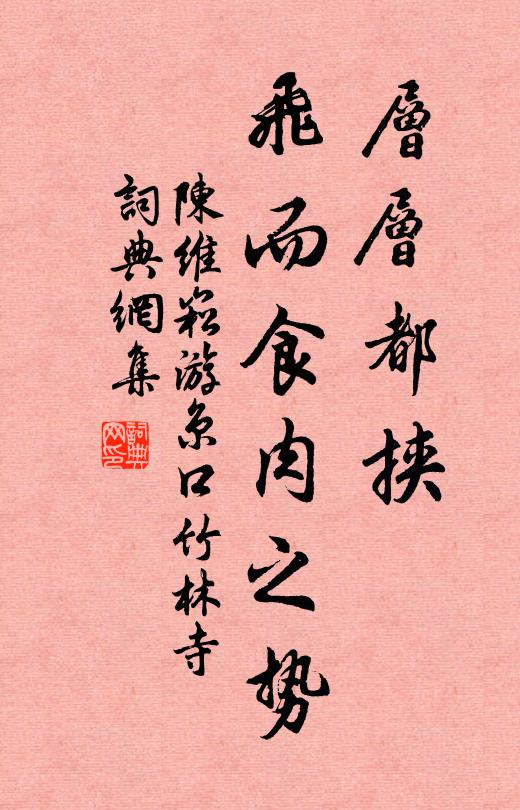 層層都挾
飛而食肉之勢
陳維崧游京口竹林寺
詞典網集
詞典网印